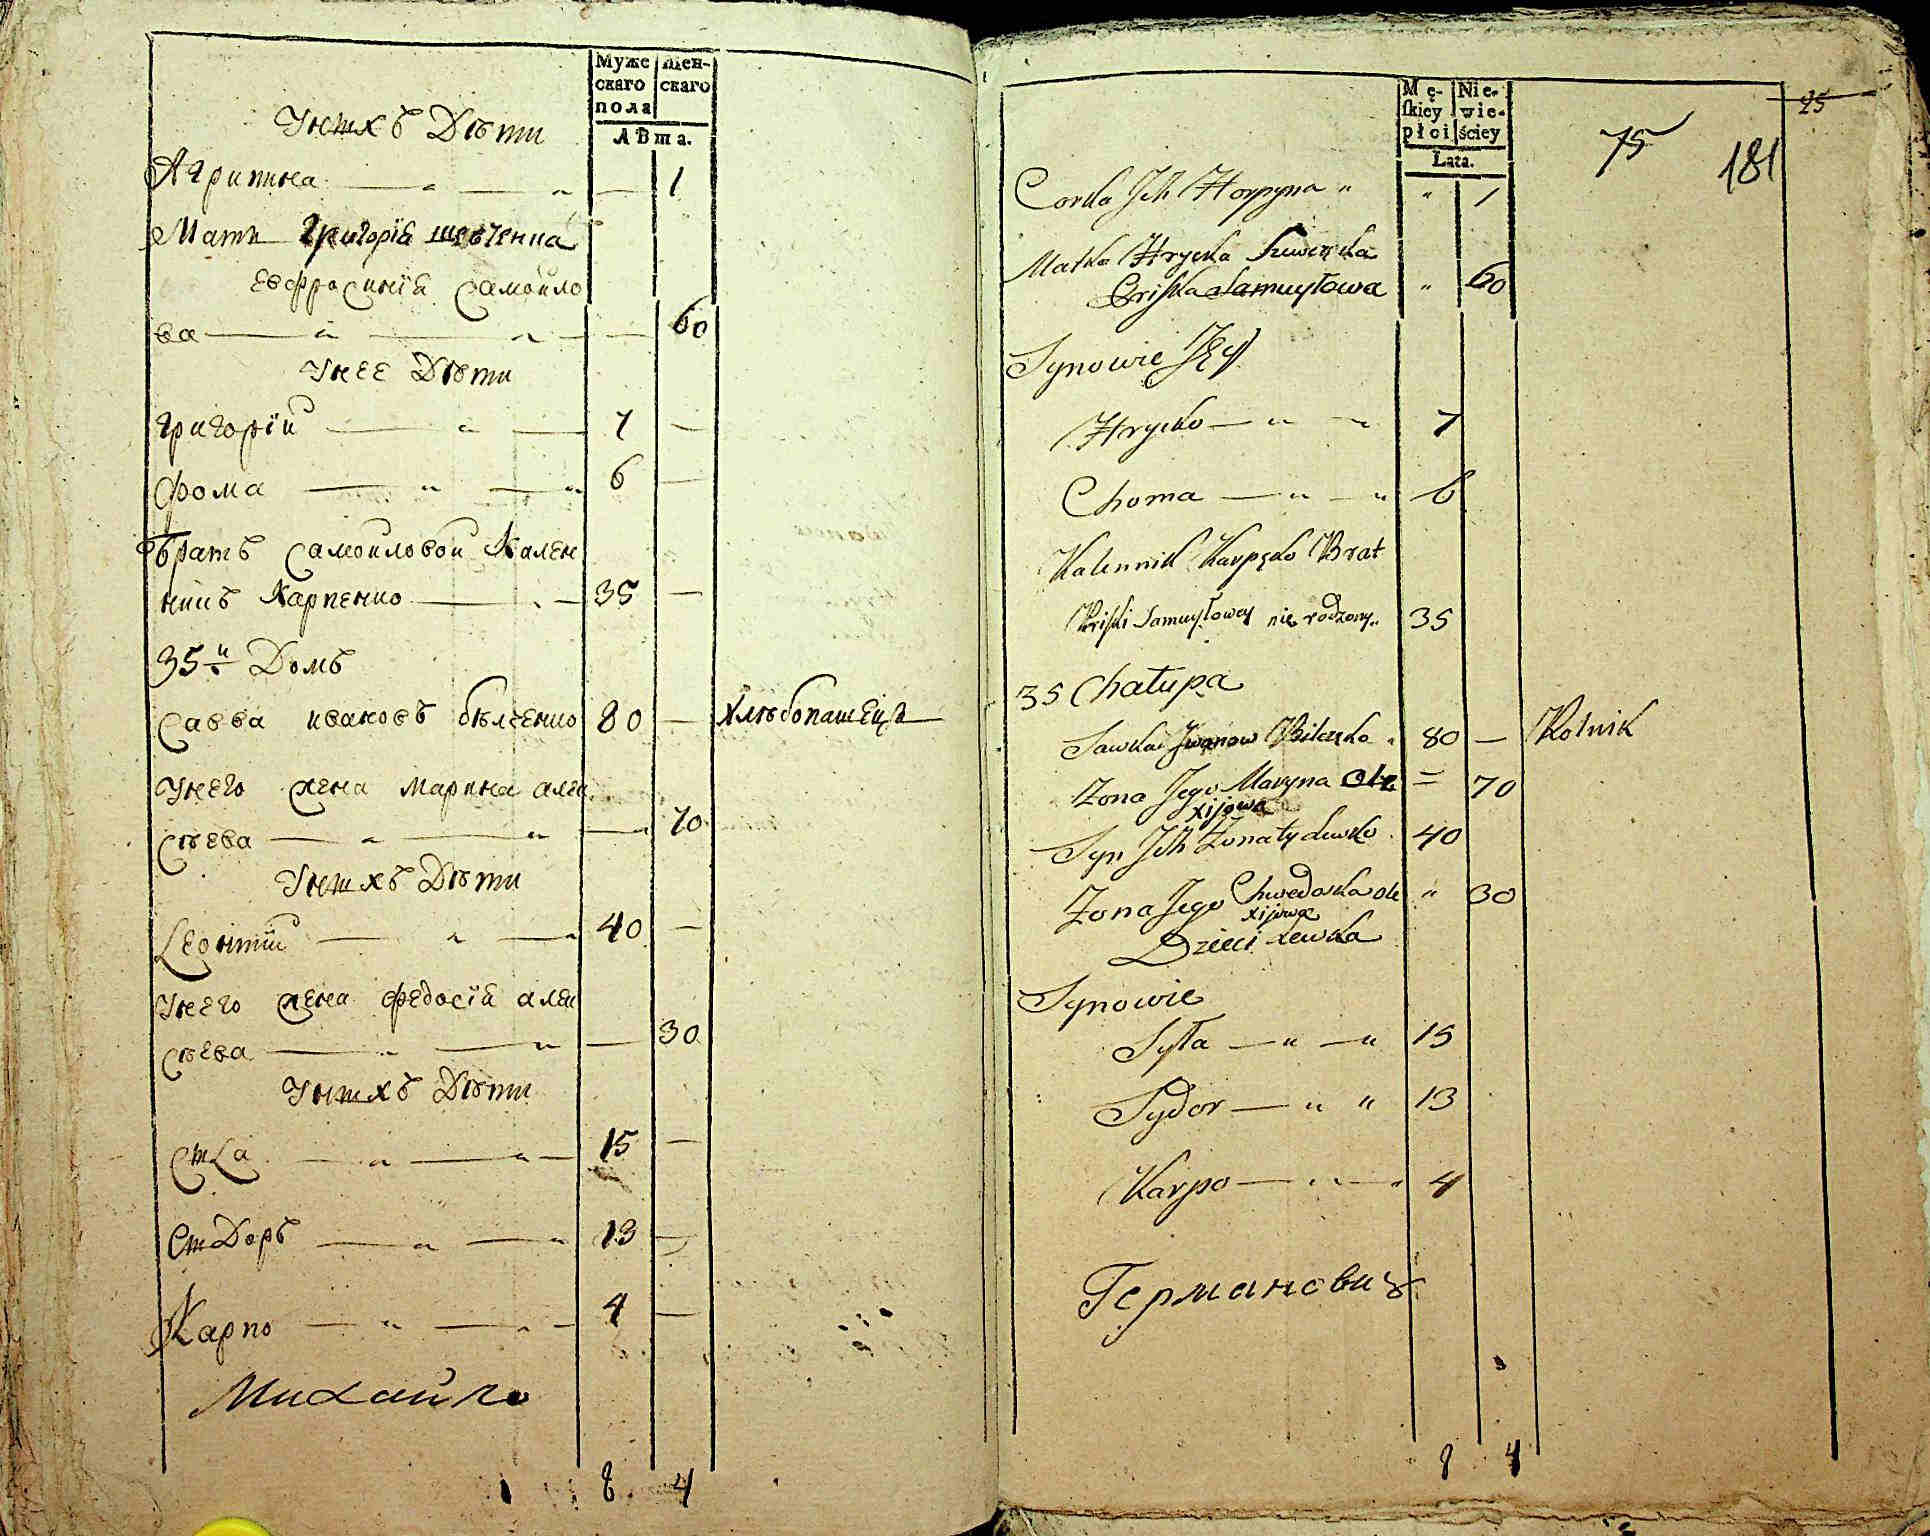 Муже Шен-
скаго скаго
пола
Лѣта.
Унихъ Дѣти
Агрипина — „ — „ — 1
Мать Григорія шевченка
Евфросинія Самойло
ва — „ — „ — 60
Унее Дѣти
Григорій — „ — 7 —
Фома — „ — „ 6 —
Братъ Самойловой Кален
никъ Карпенко — „ — 35 —
35й Домъ
Савва Ивановъ бѣлченко 80 — Хлѣбопашецъ
Унего жена Марина алек
сѣева — „ — „ — 70
Унихъ Дѣти
Леонтий — „ — „ 40 —
Унего жена Федосія алек
сѣева — „ — „ — 30
Унихъ Дѣти
15 —
Сидоръ — „ — „ 13 —
Карпо — „ — „ — 4 —
Михайло
8 4
Mę- Nie-
skiey wie-
płci ściey
Lata.
25
75
181
Corka Ich Horpyna „ „ 1
Matka Hrycka Szewczęka
Priska Samuyłowa „ 60
Synowie Jey
Hrycko — „ „ 7
Choma — „ — „ 6
Kalennik Karpęko Brat
Priski Samuyłowey nie rodzony „ 35
35 Chałupa
Sawka Iwanow Bilczęko „ 80 — Rolnik
Zona Jego Maryna Ole = 70
xijowa
Syn Ich Zonaty Lewko 40
Zona Jego Chwedoska Ole „ 30
xijowa
Dzieci Lewka
Synowie
Syła — „ — „ 15
Sydor — „ „ 13
Karpo — „ — „ 4
Германович
8 4